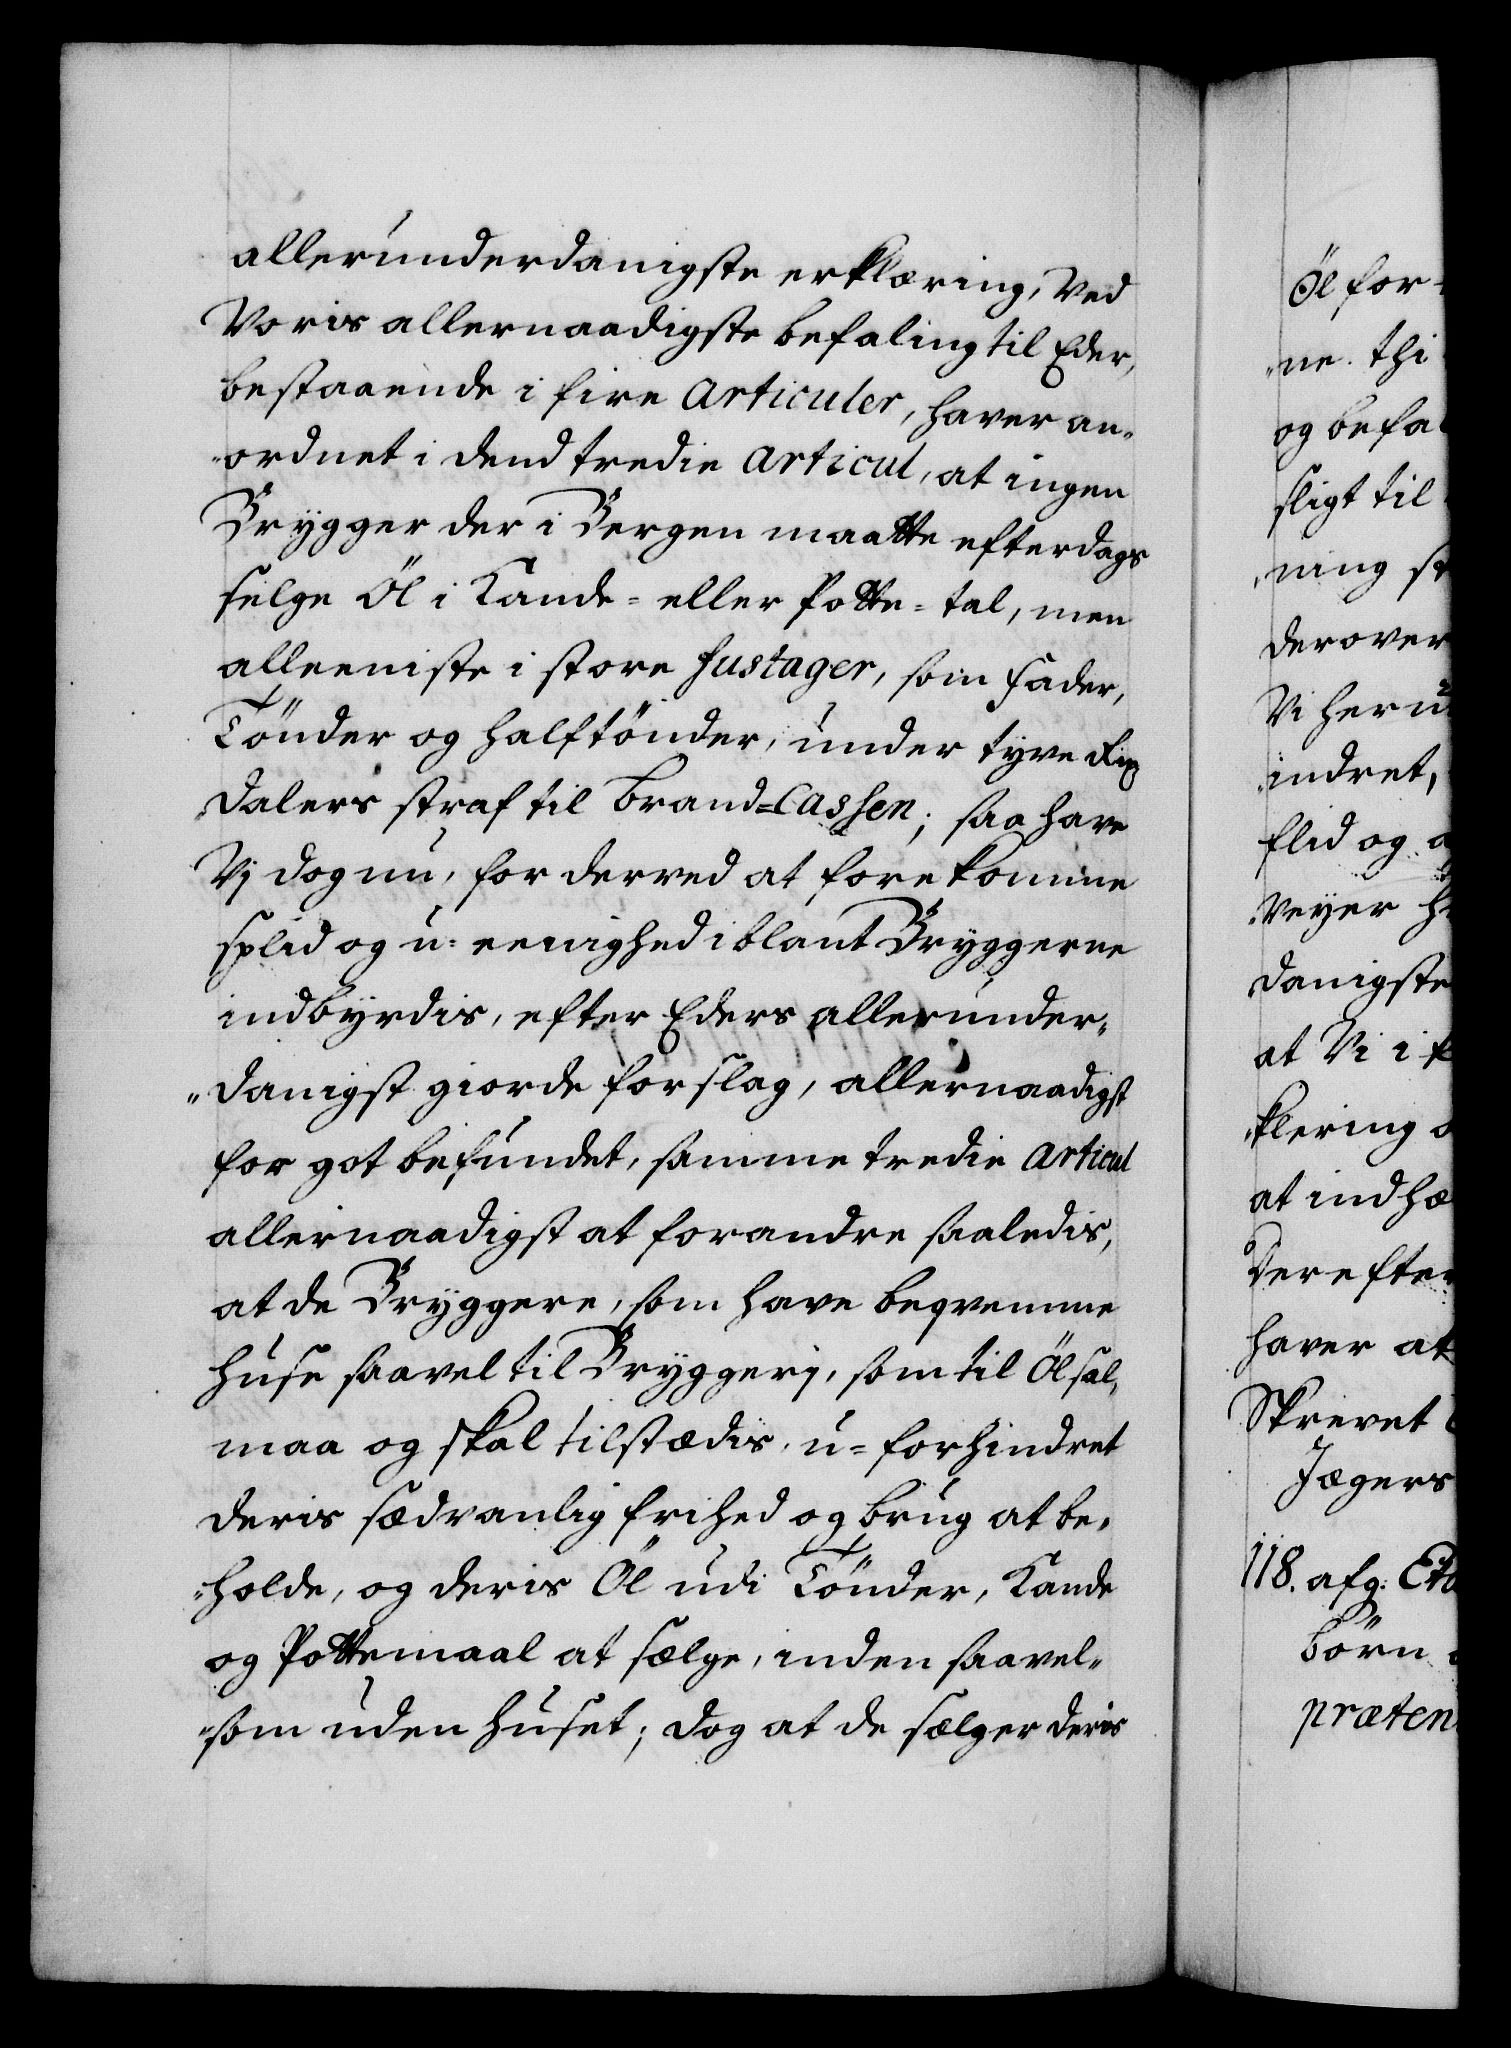 allerunderdanigste erklæring, Ved
Voris allernaadigste befaling til Eder,
bestaaende i fire Articuler, haver an-
"ordnet i dend tredie Articul, at ingen
Brygger der i Bergen maatte efterdags
selge Öl i Kande= eller Potte=tal, men
alleeniste i store fustager, som fader,
Tönder og halftönder, under tyve Rix
dalers straf til Brand=Cassen; saa have
Vj dog nu, for derved at forekomme
splid og u=eenighed iblant Bryggerne
indbyrdis, efter Eders allerunder-
"danigst giorde forslag, allernaadigst
for got befundet, samme tredie Articul
allernaadigst at forandre saaledis,
at de Bryggere, som have beqvemme
huse saavel til Bryggerj, som til Öl sal,
maa og skal tilstædis, u=forhindret
deris sædvanlig frihed og brug at be-
"holde, og deris Öl udi Tönder, Kande
og Pottemaal at sælge, inden saavel-
"som uden huset; dog at de sælger deris
Öl for-
"ne. thi
og befa
sligt til
"ning
derover
Vi her u
indret,
flid og
Veyer
danigste
at Vi i
"klering
at indhæ
derefter
haver at
Skrevet
Jægers
118. afg: Et
börn
præten